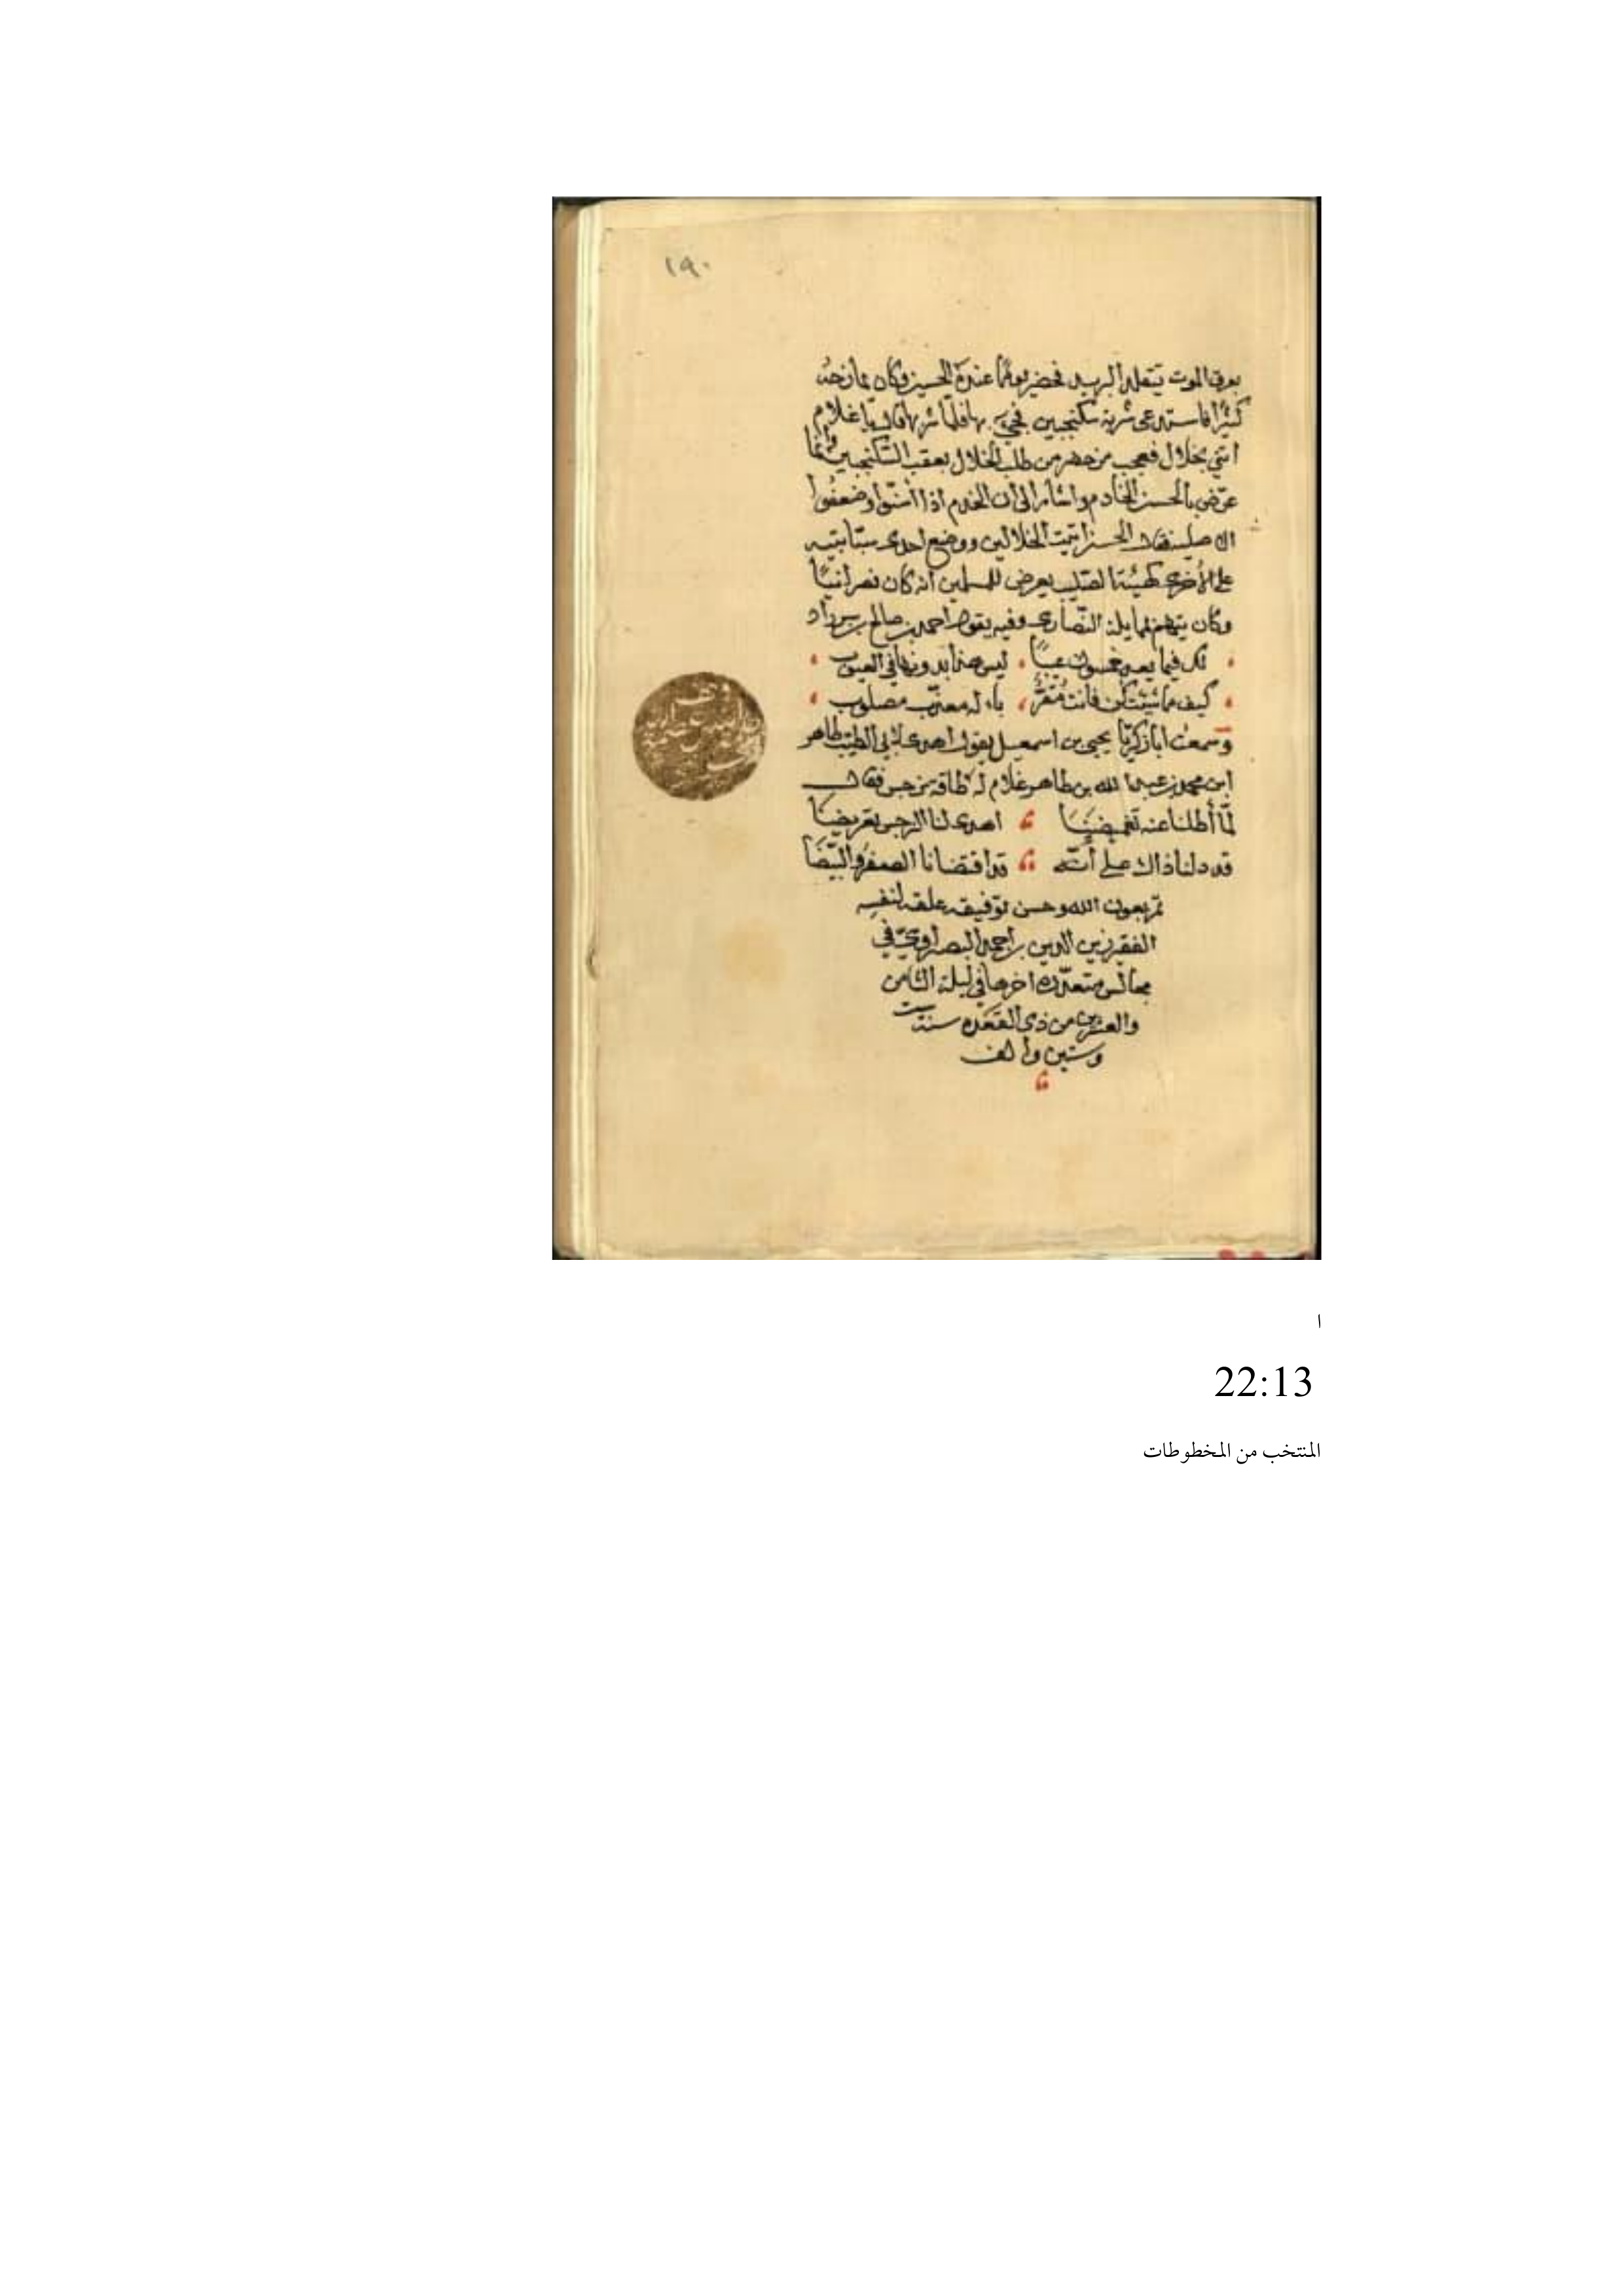 ١٩٠
يعرق الموت يتقلد البريد فحضر يومًا عنده الحسين وكان يمازحه
كثيرًا فاستدعى شربة سكنجبين فجيء بها فلمّا شربها قال يا غلام
ائتني بخلال فعجب من حضر من طلب الخلال بعقب السّكنجبين وإنّما
عرّض بالحسن الخادم واشار الى ان الخدم اذا أسنّوا وضعفوا
فقال الحسن ائت الخلالين ووضع احدى سبّابتيه
على الأخرى كهيئة الصّليب يعرض للمسلمين انه كان نصرانيًّا
وكان يتهم بمايلة النّصارى وفيه يقول احمد بن صالح بن شيرزاد
لك فيما يعد عيبًا ليس هذا بدونها في العيوب
كيف ما شئت كن فانت مقرّ باله معذّب مصلوب
وسمعت ابا زكريّا يحيى بن اسمعيل يقول اهدى الى ابي الطيّب طاهر
ابن محمد بن عبد الله بن طاهر غلام له طاقة نرجس فقال
لمّا أطلنا عنه تغميضَا اهدى لنا النرجس تعريضَا
قد دلنا ذاك على أنّه قد اقتضانا الصفر والبيضَا
تم بعون الله وحسن توفيقه علقه لنفسه
الفقير زين الدين بن احمد البصراوي في
مجالس متعدّده اخرها في ليلة الثامن
والعشرين من ذي القعده سنة ست
وستين والف
ا
22:13
المنتخب من المخطوطات